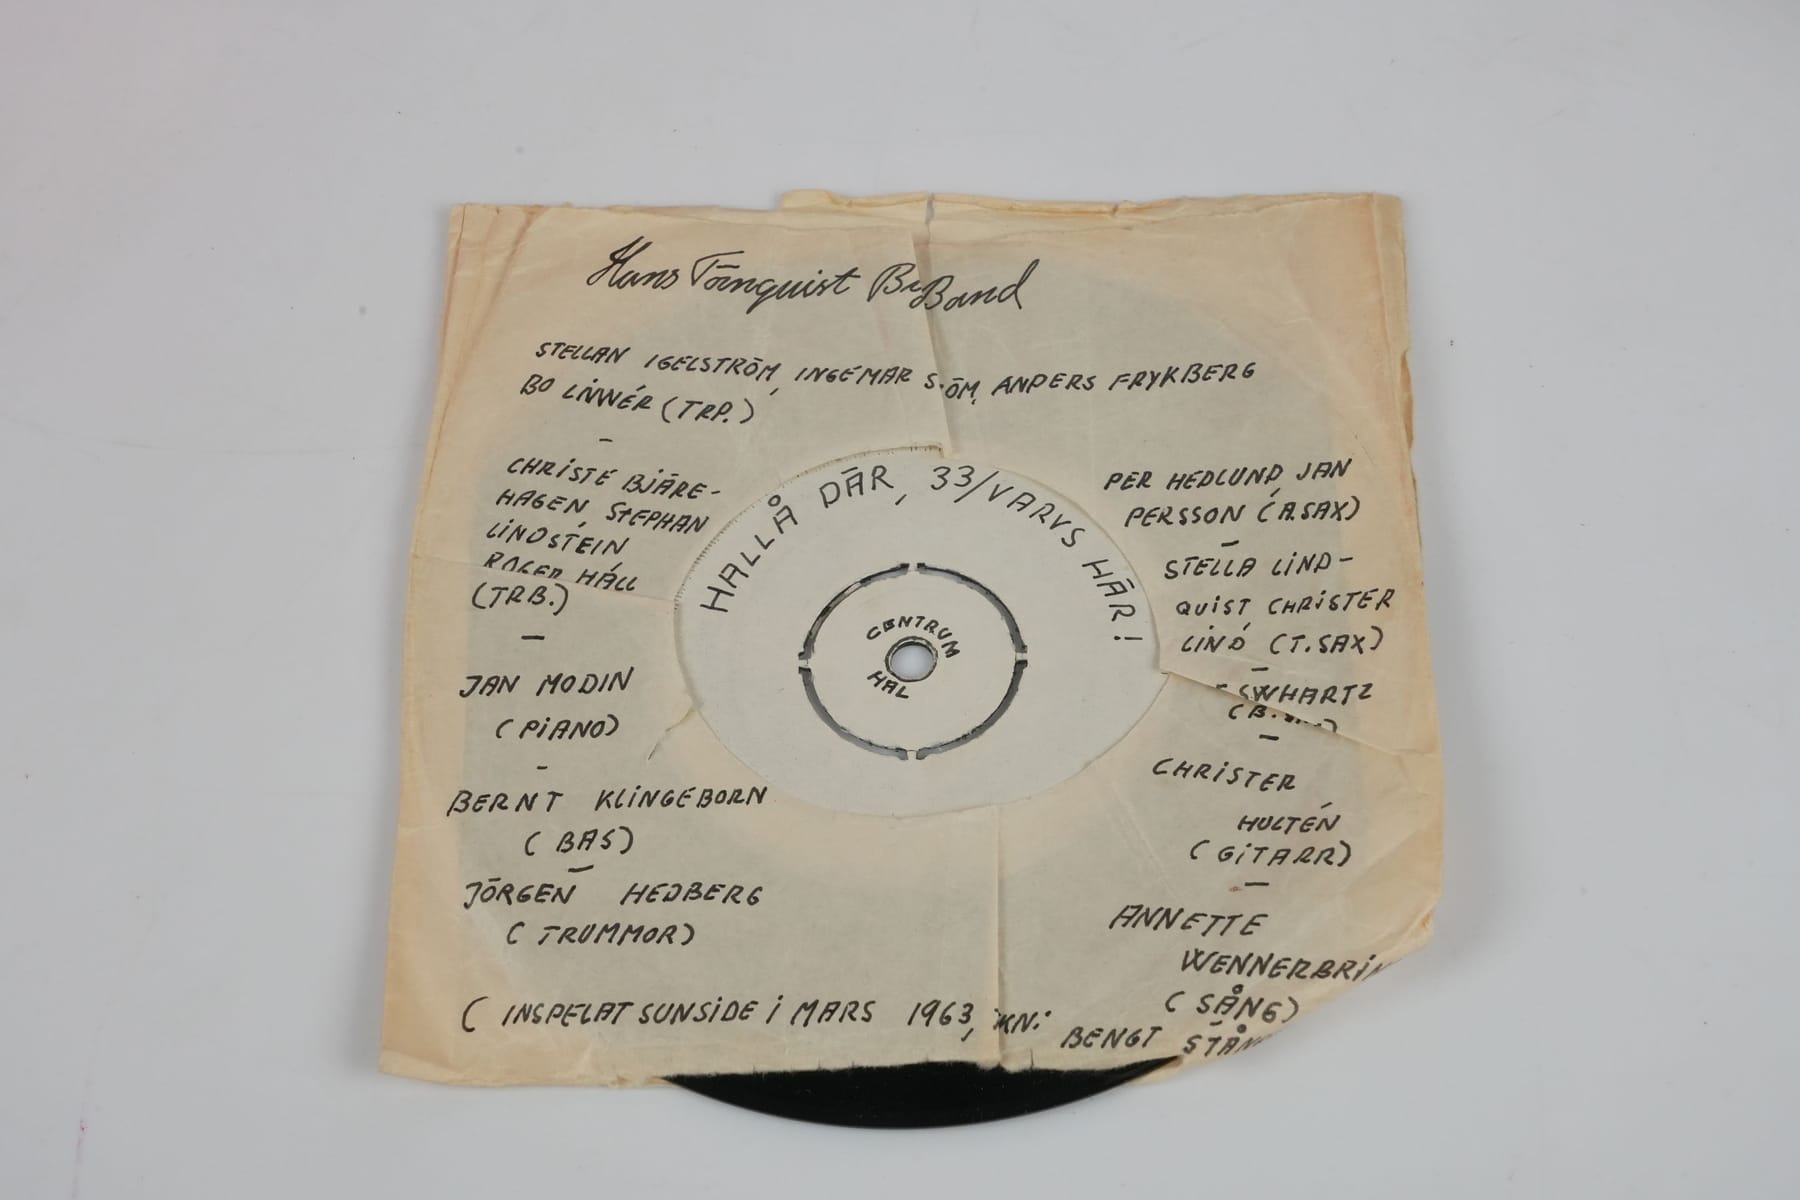 Hans Törnquist Band
STELLAN IGELSTRÖM, INGEMAR ANDERS FRYKBERG
BO LINNÉR (TRP.)
–
CHRISTE BJÄRE-
HAGEN, STEPHAN
LINDSTEIN,
ROGER HÅLL
(TRB.)
–
JAN MODIN
(PIANO)
-
BERNT KLINGEBORN
(BAS)
–
JÖRGEN HEDBERG
(TRUMMOR)
HALLÅ DÄR, 33/VARVS HÄR!
CENTRUM
HAL
PER HEDLUND, JAN
PERSSON (A.SAX)
–
STELLA LIND-
QUIST, CHRISTER
LIND (T.SAX)
–
SWHARTZ
–
CHRISTER
HULTÉN
(GITARR)
–
ANNETTE
WENNERBRIN
(SÅNG)
–
(INSPELAT SUNSIDE I MARS 1963, BENGT